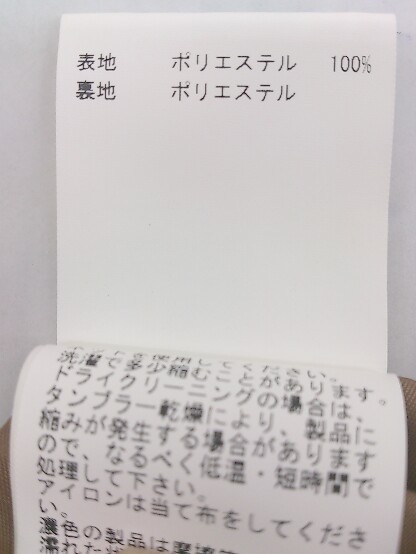 表地 ポリエステル 100%
裏地 ポリエステル
洗濯で多少縮むことがあります。
ドライクリーニングの場合は、
タンブラー乾燥により、製品に
縮みが発生する場合があります
ので、なるべく低温・短時間で
処理して下さい。
アイロンは当て布をしてくださ
い。
濃色の製品は摩擦